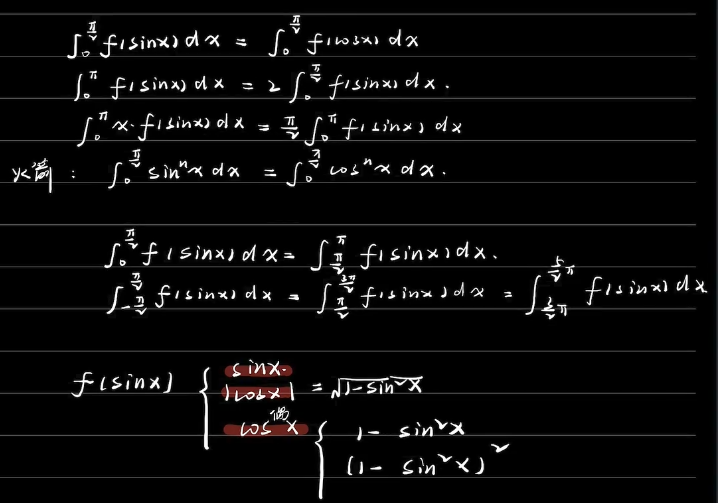 ∫₀^{π/2} f(sinx) dx = ∫₀^{π/2} f(cosx) dx
∫₀^π f(sinx) dx = 2 ∫₀^{π/2} f(sinx) dx.
∫₀^π x·f(sinx) dx = π/2 ∫₀^π f(sinx) dx
: ∫₀^{π/2} sinⁿx dx = ∫₀^{π/2} cosⁿx dx.
∫₀^{π/2} f(sinx) dx = ∫_{π/2}^π f(sinx) dx.
∫_{-π/2}^{π/2} f(sinx) dx = ∫_{π/2}^{3π/2} f(sinx) dx = ∫_{3/2 π}^{5/2 π} f(sinx) dx
f(sinx) { sinx.
|cosx| = √(1-sin²x)
cos^偶 x { 1 - sin²x
(1 - sin²x)²